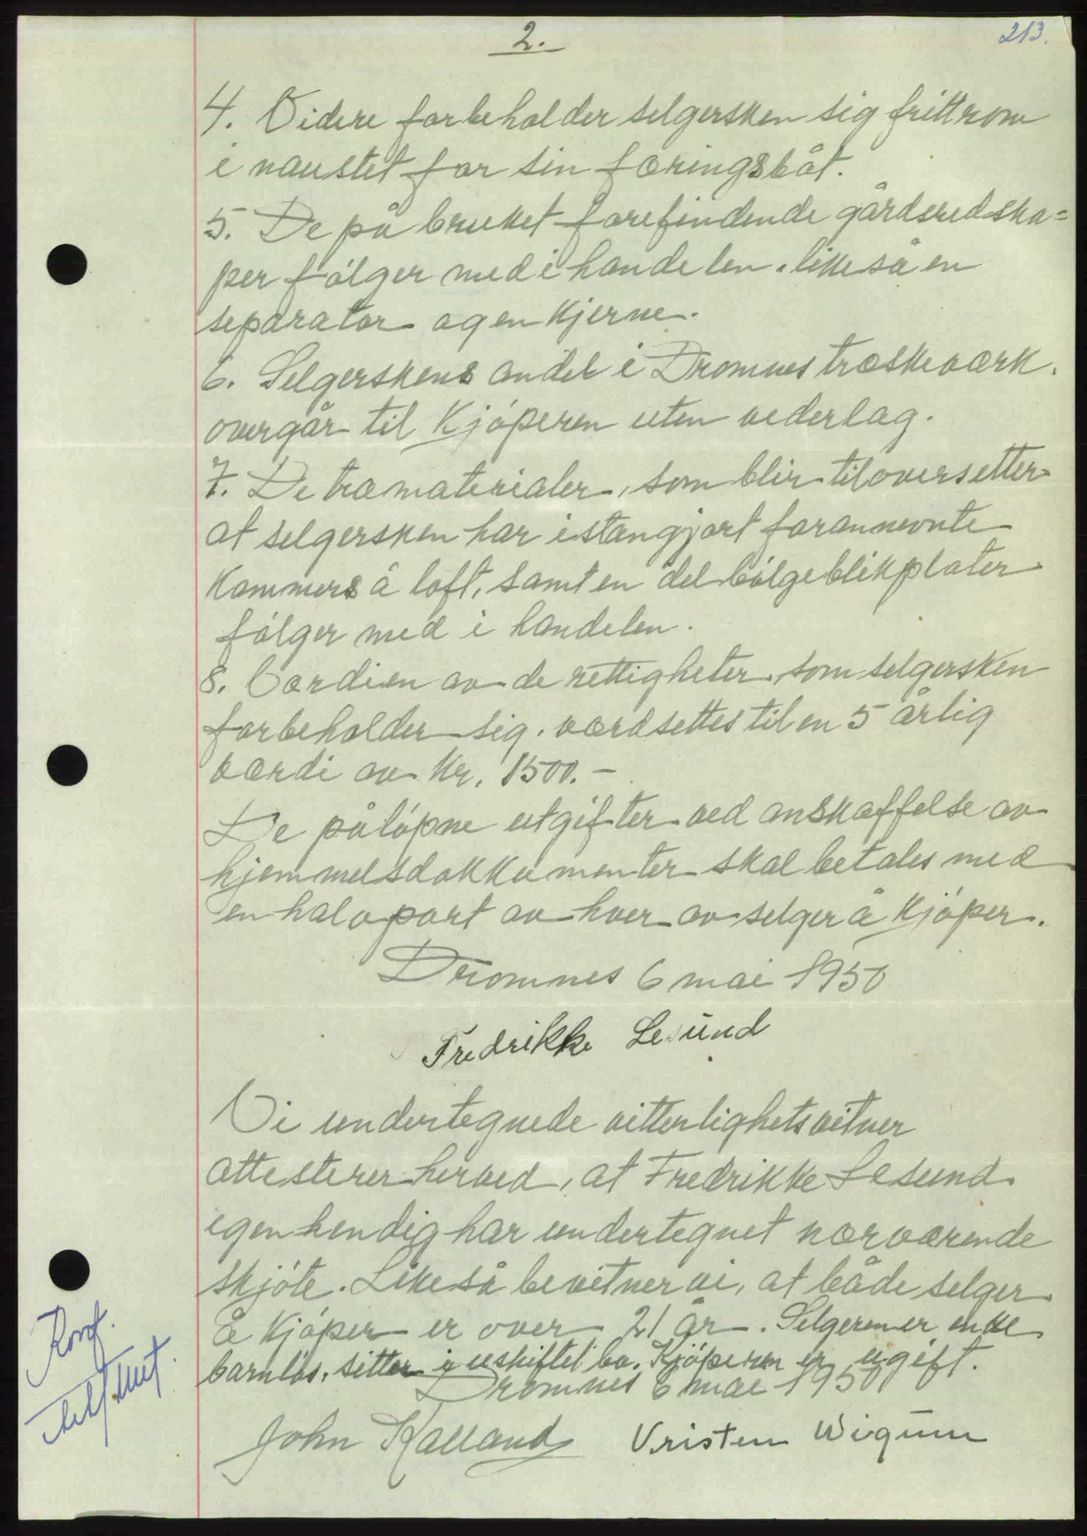 2.
213.
4. Videre forbeholder selgersken sig frittrom
i naustet for sin færingsbåt.
5. De på bruket forefindende gårdsredska=
per følger med i handelen. likeså en
separator og en kjerne.
6. Selgerskens andel i Dromnes træskeværk.
overgår til Kjøperen uten vederlag.
7. De træmaterialer, som blir tilovers etter
at selgersken har istangjort forannevnte
Kammers å loft, samt en del bølgeblikplater
følger med i handelen.
8. Værdien av de rettigheter, som selgersken
forbeholder sig. værdsettes til en 5 årlig
værdi av kr. 1500.-
De påløpne utgifter ved anskaffelse av
hjemmelsdokkumenter skal betales med
en halvpart av hver av selger å Kjøper.
Dromnes 6 mai 1950
Fredrikke Lesund
Vi undertegnede vitterlighetsvitner
attesterer herved, at Fredrikke Lesund
egenhendig har undertegnet nærværende
skjøte. Likeså bevitner vi, at både selger
å Kjøper er over 21 år. Selgeren er enke
barnløs, sitter i uskiftet bo. Kjøperen er ugift.
Dromnes 6 mai 1950
John Kalland Kristen Wigum
Konf.